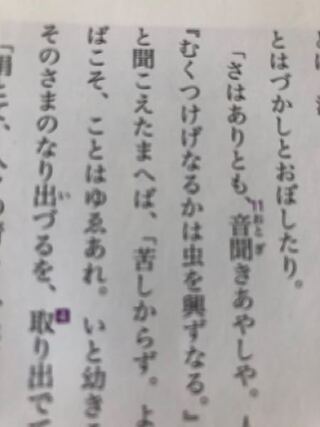 とはづかしとおぼしたり。
「さはありとも、11音聞きあやしや。
おとぎ
『むくつけげなるかは虫を興ずなる。』
と聞こえたまへば、「苦しからず。よ
ばこそ、ことはゆゑあれ。いと幼き
そのさまのなり出づるを、4取り出でて
い